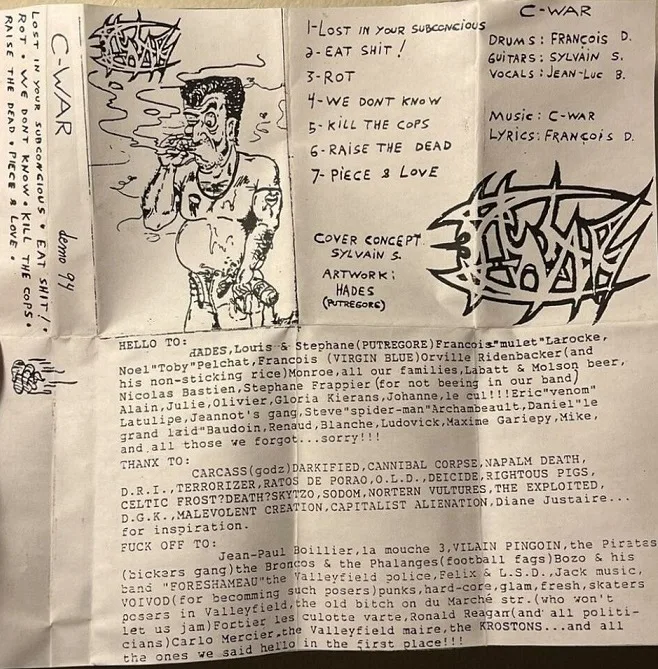 C-WAR
demo 94
LOST IN YOUR SUBCONCIOUS • EAT SHIT!
ROT • WE DONT KNOW • KILL THE COPS •
RAISE THE DEAD • PIECE & LOVE •
1-LOST IN YOUR SUBCONCIOUS
2-EAT SHIT!
3-ROT
4-WE DONT KNOW
5-KILL THE COPS
6-RAISE THE DEAD
7-PIECE & LOVE
COVER CONCEPT
SYLVAIN S.
ARTWORK:
HADES
(PUTREGORE)
C-WAR
DRUMS: FRANÇOIS D.
GUITARS: SYLVAIN S.
VOCALS: JEAN-LUC B.
MUSIC: C-WAR
LYRICS: FRANÇOIS D.
C-WAR
HELLO TO:
HADES,Louis & Stephane(PUTREGORE)Francois"mulet"Larocke,
Noel"Toby"Pelchat,Francois (VIRGIN BLUE)Orville Ridenbacker(and
his non-sticking rice)Monroe,all our families,Labatt & Molson beer,
Nicolas Bastien,Stephane Frappier(for not beeing in our band)
Alain,Julie,Olivier,Gloria Kierans,Johanne,le cul!!!Eric"venom"
Latulipe,Jeannot's gang,Steve"spider-man"Archambeault,Daniel"le
grand laid"Baudoin,Renaud,Blanche,Ludovick,Maxime Gariepy,Mike,
and all those we forgot...sorry!!!
THANX TO:
CARCASS(godz)DARKIFIED,CANNIBAL CORPSE,NAPALM DEATH,
D.R.I.,TERRORIZER,RATOS DE PORAO,O.L.D.,DEICIDE,RIGHTOUS PIGS,
CELTIC FROST?DEATH?SKYTZO,SODOM,NORTERN VULTURES,THE EXPLOITED,
D.G.K.,MALEVOLENT CREATION,CAPITALIST ALIENATION,Diane Justaire...
for inspiration.
FUCK OFF TO:
Jean-Paul Boillier,la mouche 3,VILAIN PINGOIN,the Pirates
(bickers gang)the Broncos & the Phalanges(football fags)Bozo & his
band "FORESHAMEAU"the Valleyfield police,Felix & L.S.D.,Jack music,
VOIVOD(for becomming such posers)punks,hard-core,glam,fresh,skaters
posers in Valleyfield,the old bitch on du Marché str.(who won't
let us jam)Fortier les culotte varte,Ronald Reagan(and all politi-
cians)Carlo Mercier,the Valleyfield maire,the KROSTONS...and all
the ones we said hello in the first place!!!